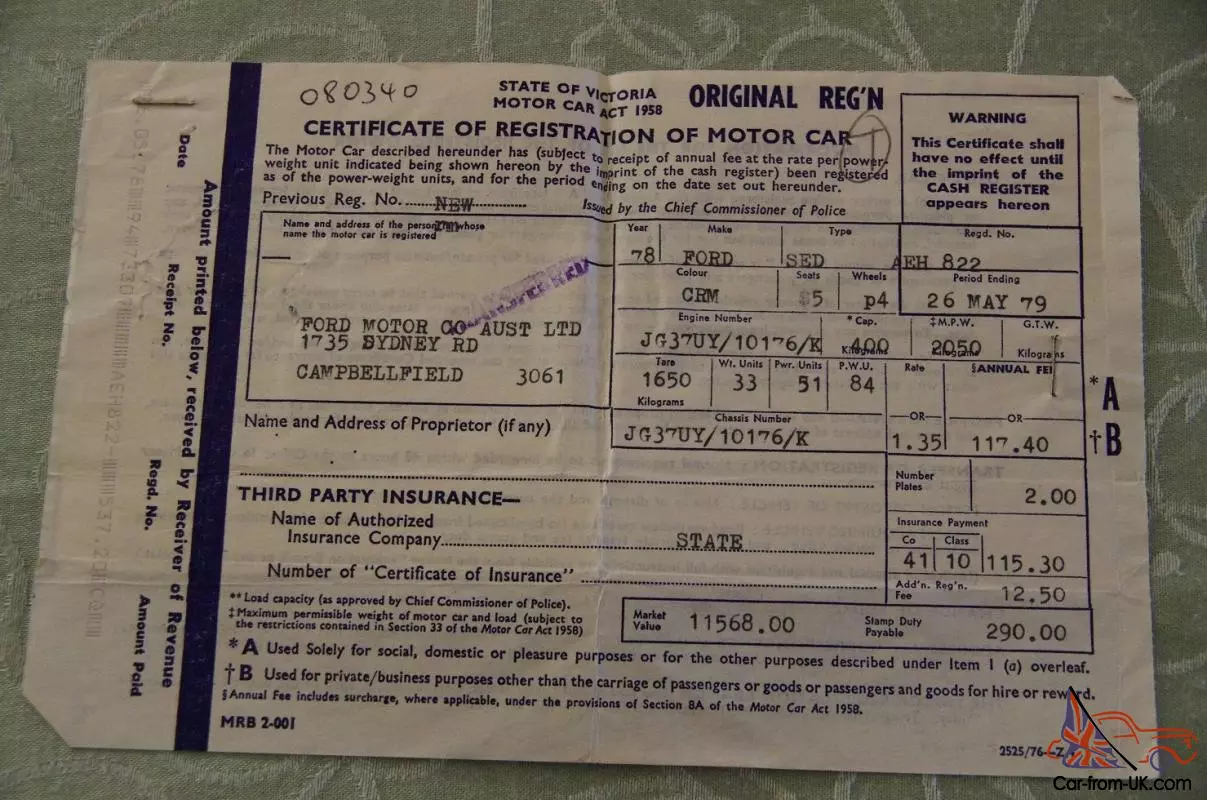 080340
STATE OF VICTORIA
MOTOR CAR ACT 1958
ORIGINAL REG'N
CERTIFICATE OF REGISTRATION OF MOTOR CAR
The Motor Car described hereunder has (subject to receipt of annual fee at the rate per power-
weight unit indicated being shown hereon by the imprint of the cash register) been registered
as of the power-weight units, and for the period ending on the date set out hereunder.
WARNING
This Certificate shall
have no effect until
the imprint of the
CASH REGISTER
appears hereon
Previous Reg. No. NEW
Issued by the Chief Commissioner of Police
Name and address of the person in whose
name the motor car is registered
FORD MOTOR CO AUST LTD
1735 SYDNEY RD
CAMPBELLFIELD 3061
Year Make Type Regd. No.
78 FORD SED AEH 822
Colour Seats Wheels Period Ending
CRM 5 P4 26 MAY 79
Engine Number *Cap. ‡M.P.W. G.T.W.
JG37UY/10176/K 400 2050
Kilograms Kilograms Kilograms
Tare Wt. Units Pwr. Units P.W.U. Rate §ANNUAL FEE
1650 33 51 84
Kilograms
Chassis Number —OR— —OR—
JG37UY/10176/K 1.35 117.40
*A
†B
Name and Address of Proprietor (if any)
Number
Plates 2.00
THIRD PARTY INSURANCE—
Name of Authorized
Insurance Company STATE
Number of "Certificate of Insurance"
Insurance Payment
Co Class
41 10 115.30
Add'n. Reg'n.
Fee 12.50
**Load capacity (as approved by Chief Commissioner of Police).
‡Maximum permissible weight of motor car and load (subject to
the restrictions contained in Section 33 of the Motor Car Act 1958)
Market
Value 11568.00
Stamp Duty
Payable 290.00
*A Used Solely for social, domestic or pleasure purposes or for the other purposes described under Item 1 (a) overleaf.
†B Used for private/business purposes other than the carriage of passengers or goods or passengers and goods for hire or reward.
§Annual Fee includes surcharge, where applicable, under the provisions of Section 8A of the Motor Car Act 1958.
MRB 2-001
2525/76—Z
Amount printed below, received by Receiver of Revenue
Date Receipt No. Regd. No. Amount Paid
Car-from-UK.com